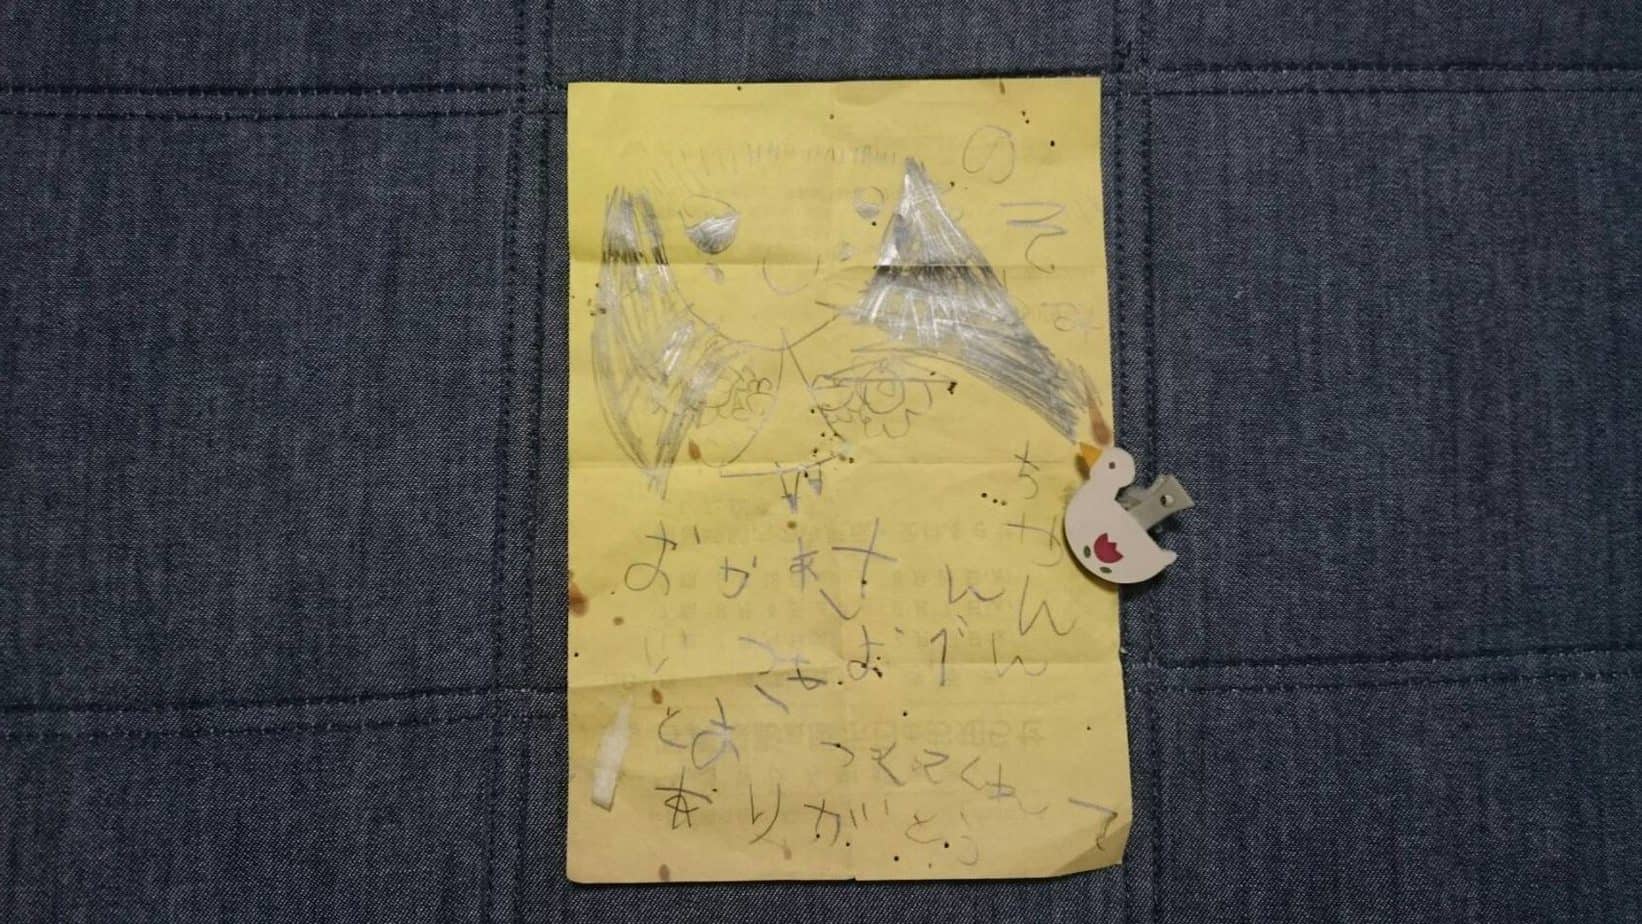 ちゃん
おかあさん
いつもおべん
とお つくてくれて
ありがとう